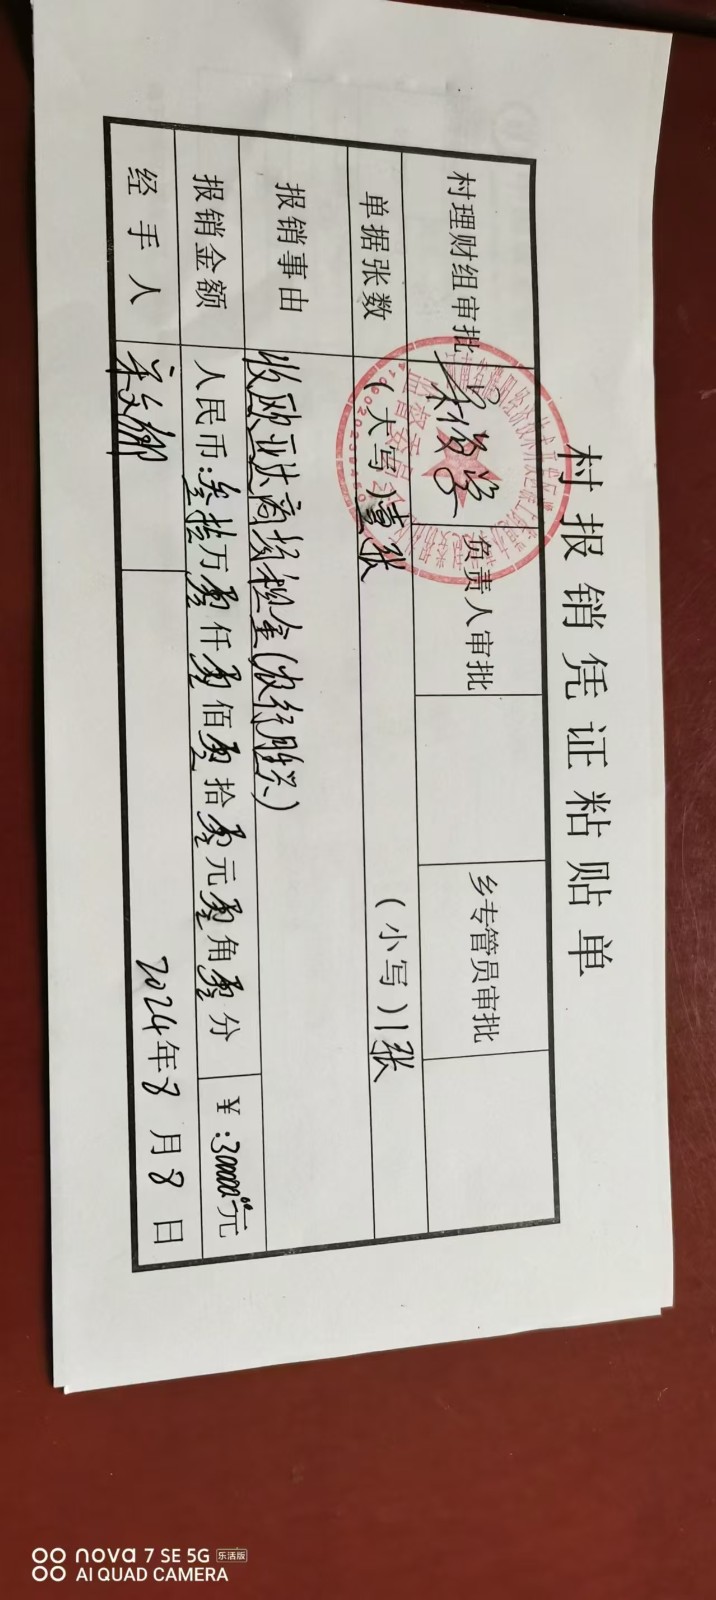 村报销凭证粘贴单
村理财组审批 负责人审批 乡专管员审批
单据张数 (大写)壹张 (小写)1张
报销事由 收欧亚达商场租金(农行胜兴)
报销金额 人民币:叁拾万零仟零佰零拾零元零角零分 ¥:300000.00元
经手人 2024年8月8日
nova 7 SE 5G 乐活版
AI QUAD CAMERA